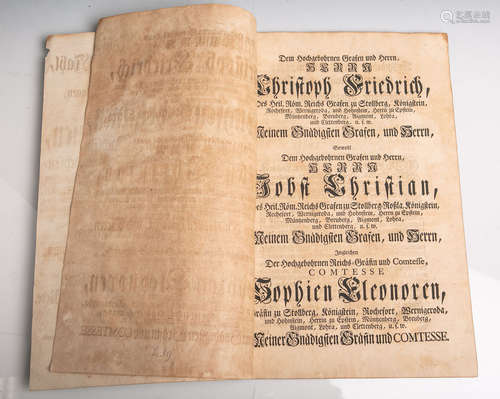 Dem Hochgebohrnen Grafen und Herrn,
HERRN
Christoph Friedrich,
Des Heil. Röm. Reichs Grafen zu Stollberg, Königstein,
Rochefort, Wernigeroda, und Hohnstein, Herrn zu Epstein,
Müntzenberg, Breuberg, Aigmont, Lohra,
und Clettenberg. u. s. w.
Meinem Gnädigsten Grafen, und Herrn,
Sowoll
Dem Hochgebohrnen Grafen und Herrn,
HERRN
Jobst Christian,
des Heil. Röm. Reichs Grafen zu Stollberg-Roßla, Königstein,
Rochefort, Wernigeroda, und Hohnstein, Herrn zu Epstein,
Müntzenberg, Breuberg, Aigmont, Lohra,
und Clettenberg. u. s. w.
Meinem Gnädigsten Grafen, und Herrn,
Ingleichen
Der Hochgebohrnen Reichs-Gräfin und Comtesse,
COMTESSE
Sophien Eleonoren,
Gräfin zu Stollberg, Königstein, Rochefort, Wernigeroda,
und Hohnstein, Herrin zu Epstein, Müntzenberg, Breuberg,
Aigmont, Lohra, und Clettenberg. u. s. w.
Meiner Gnädigsten Gräfin und COMTESSE.